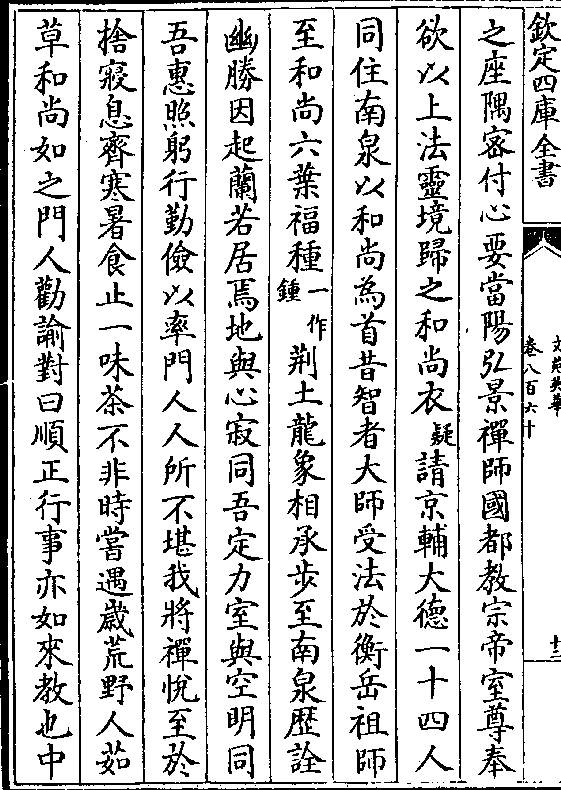 欽定四庫全書
文苑英華
卷八百六十
十三
之座隅密付心要當陽弘景禪師國都教宗帝室尊奉
欲以上法靈境歸之和尚衣疑請京輔大德一十四人
同住南泉以和尚為首昔智者大師受法於衡岳祖師
至和尚六葉福種一作鍾荆土龍象相承步至南泉歴詮
幽勝因起蘭若居焉地與心寂同吾定力室與空明同
吾惠照躬行勤儉以率門人人所不堪我將禪悅至於
捨寢息齊寒暑食止一味茶不非時嘗遇歲荒野人茹
草和尚如之門人勸諭對曰順正行事亦如來教也中